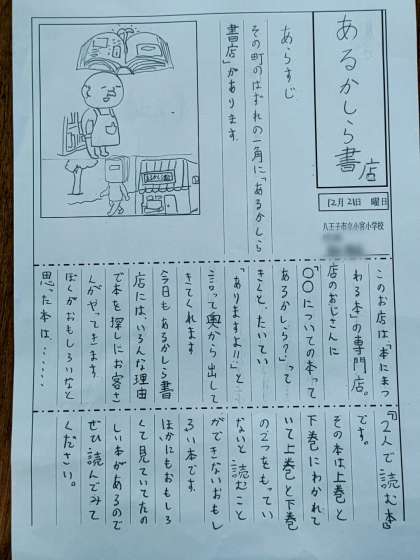 あるかしら書店
12月21日 曜日
八王子市立小宮小学校
あらすじ
その町のはずれの一角に「あるかしら
書店」があります。
このお店は「本にまつ
わる本」の専門店。
店のおじさんに
「〇〇についての本って
あるかしら?」って
きくと、たいてい
「ありますよ!!」と
言って奥から出して
きてくれます
今日もあるかしら書
店には、いろんな理由
で本を探しにお客さ
んがやってきます。
ぼくがおもしろいなと
思った本は、……
『2人で読む本』
です。
その本は上巻と
下巻にわかれて
いて上巻と下巻
の2つをもってい
ないと読むこと
ができないおもし
ろい本です。
ほかにもおもしろ
くて見ていてたの
しい本があるので
ぜひ読んでみて
ください。